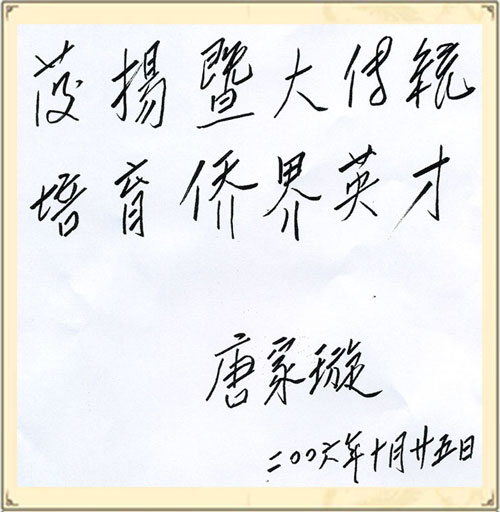 發揚暨大传統
培育侨界英才
唐家璇
二〇〇六年十月廿五日